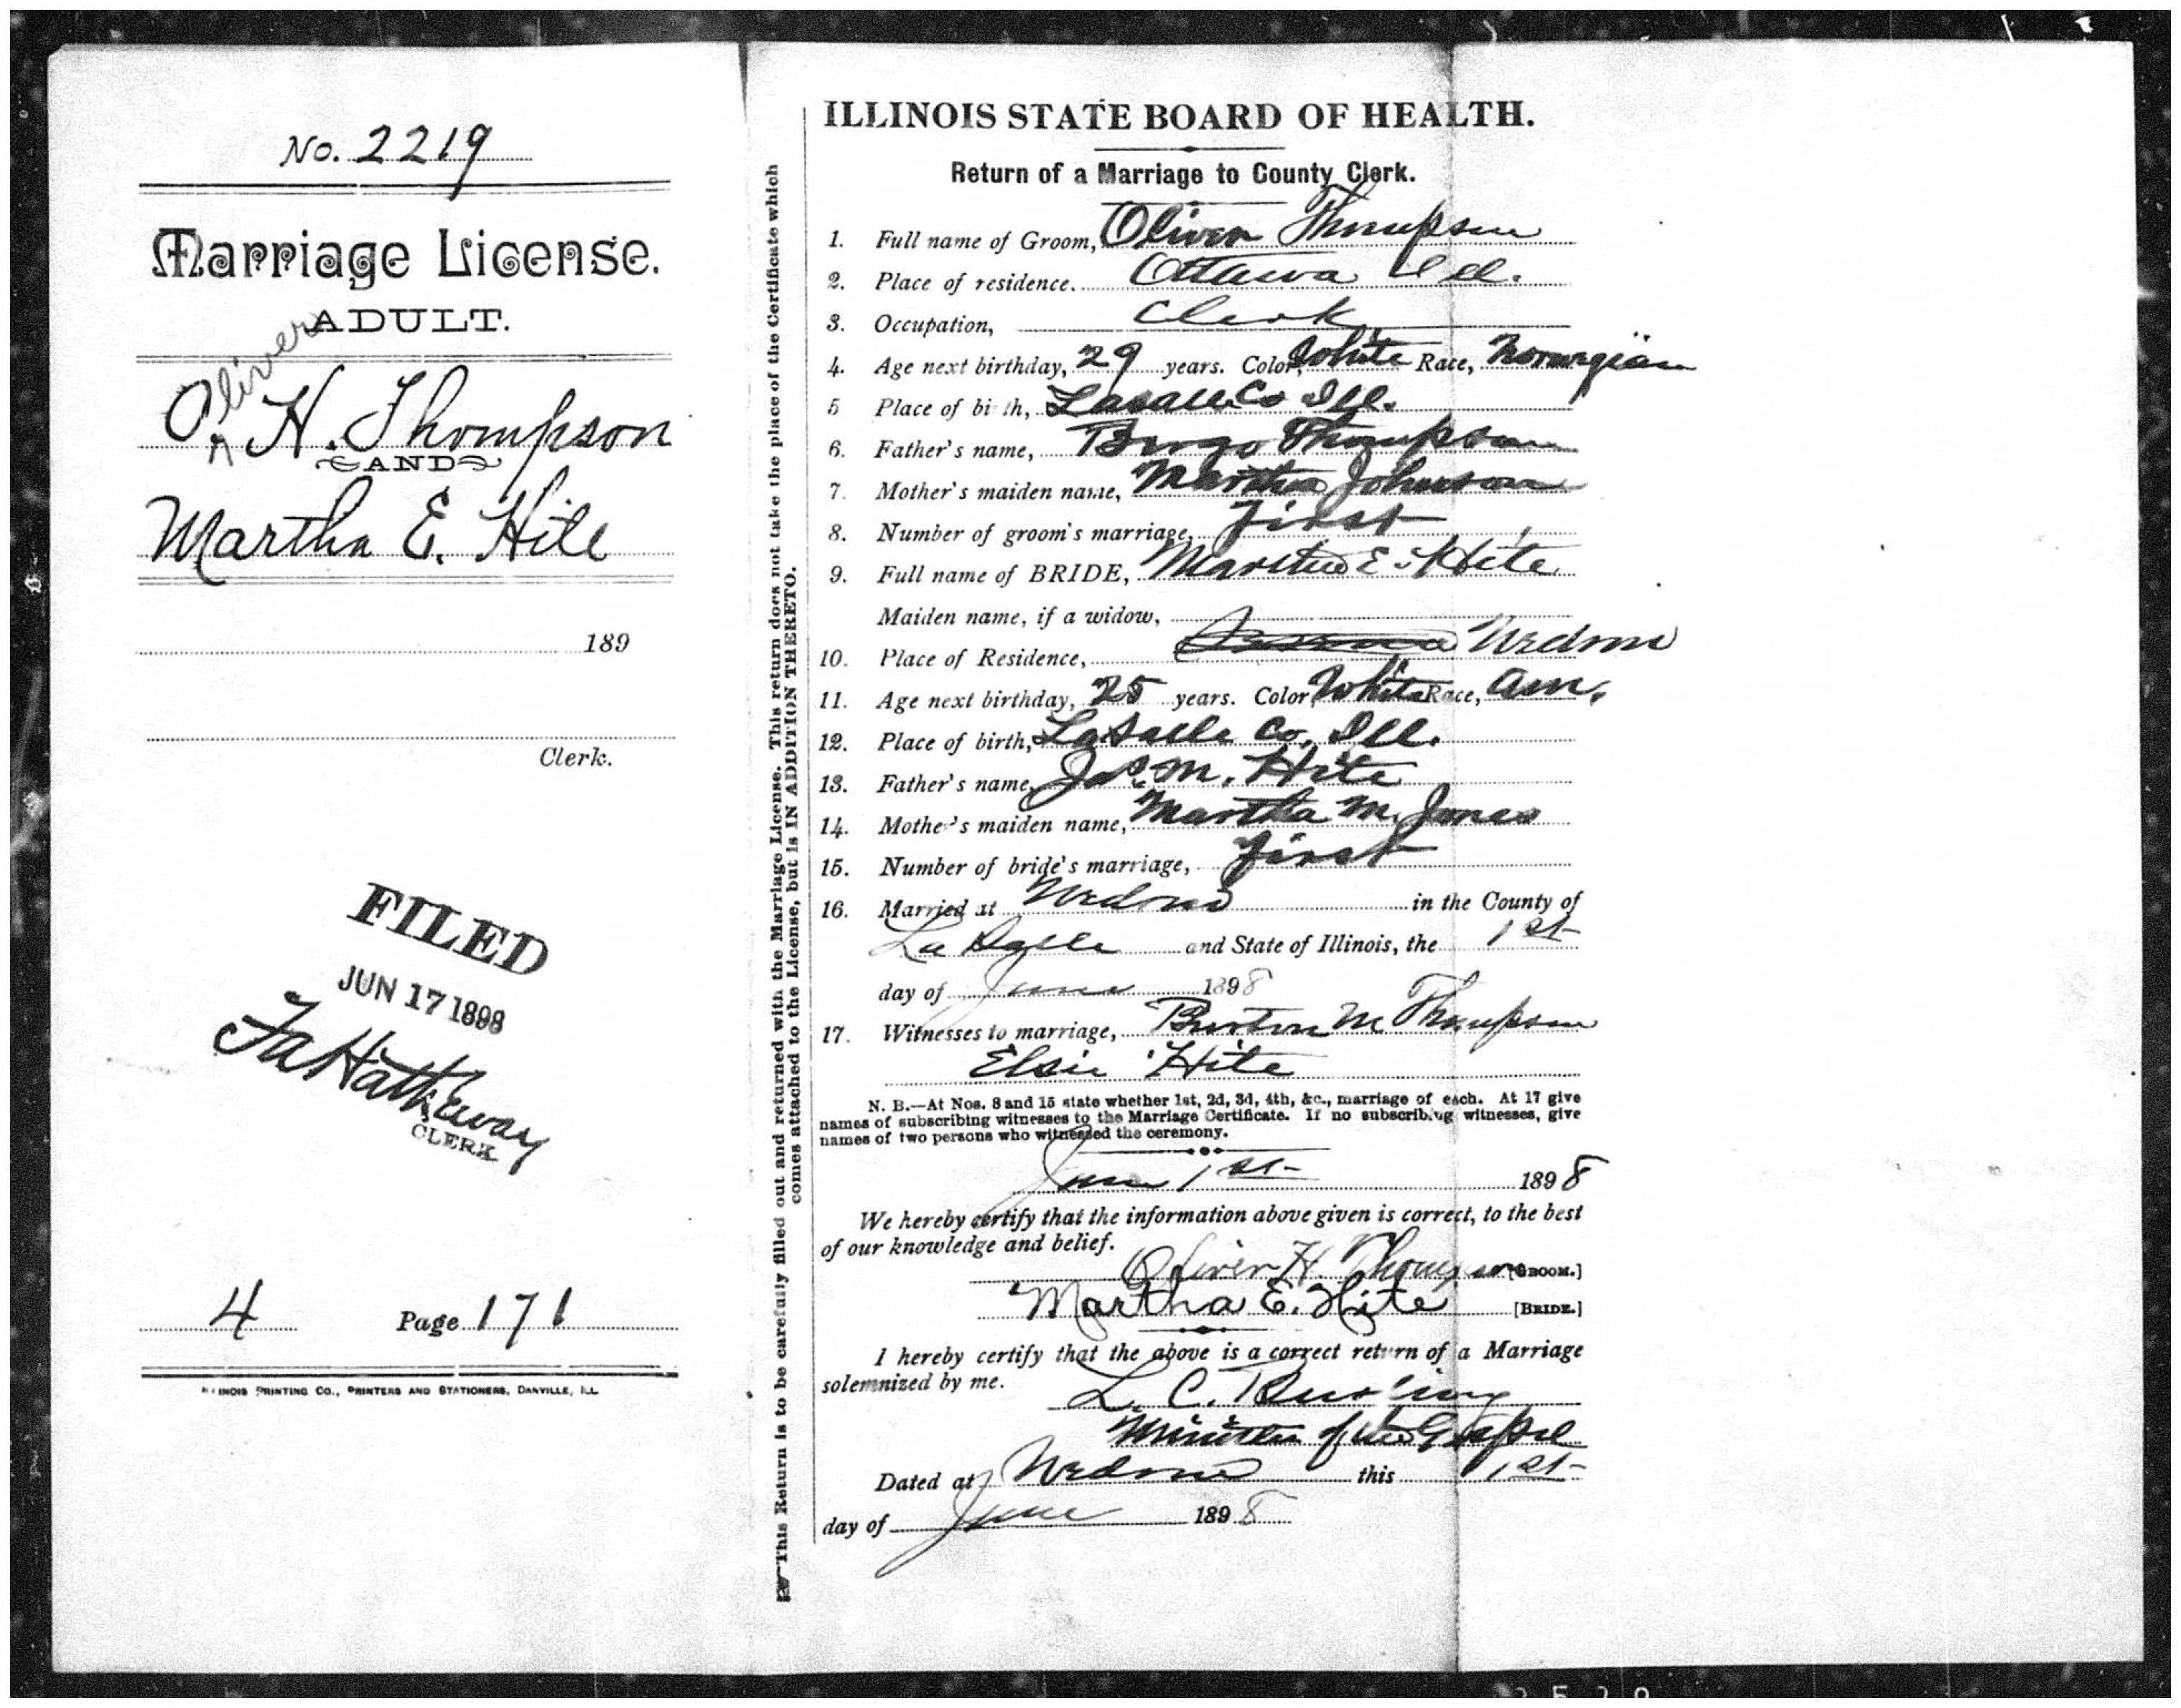 No. 2219
Marriage License.
ADULT.
Oliver
O. H. Thompson
AND
Martha E. Hite
189
Clerk.
FILED
JUN 17 1898
F A Hathaway
CLERK
4 Page 171
ILLINOIS PRINTING CO., PRINTERS AND STATIONERS, DANVILLE, ILL
This Return is to be carefully filled out and returned with the Marriage License. This return does not take the place of the Certificate which
comes attached to the License, but is IN ADDITION THERETO.
ILLINOIS STATE BOARD OF HEALTH.
Return of a Marriage to County Clerk.
1. Full name of Groom, Oliver Thompson
2. Place of residence. Ottawa Ill.
3. Occupation, Clerk
4. Age next birthday, 29 years. Color, White Race, Norwegian
5 Place of birth, Lasalle Co Ill.
6. Father's name, Thompson
7. Mother's maiden name, Martha Johnson
8. Number of groom's marriage, First
9. Full name of BRIDE, Martha E. Hite
Maiden name, if a widow,
10. Place of Residence, Wedron
11. Age next birthday, 25 years. Color, White Race, Am.
12. Place of birth, LaSalle Co. Ill.
13. Father's name, Jas. M. Hite
14. Mother's maiden name, Martha M. Jones
15. Number of bride's marriage, First
16. Married at Wedron in the County of
La Salle and State of Illinois, the 1st
day of June 1898
17. Witnesses to marriage, Burton M Thompson
Elsie Hite
N. B.—At Nos. 8 and 15 state whether 1st, 2d, 3d, 4th, &c., marriage of each. At 17 give
names of subscribing witnesses to the Marriage Certificate. If no subscribing witnesses, give
names of two persons who witnessed the ceremony.
June 1st 1898
We hereby certify that the information above given is correct, to the best
of our knowledge and belief.
Oliver H. Thompson [GROOM.]
Martha E. Hite [BRIDE.]
I hereby certify that the above is a correct return of a Marriage
solemnized by me.
L. C.
Minister of the Gospel
Dated at Wedron this 1st
day of June 1898